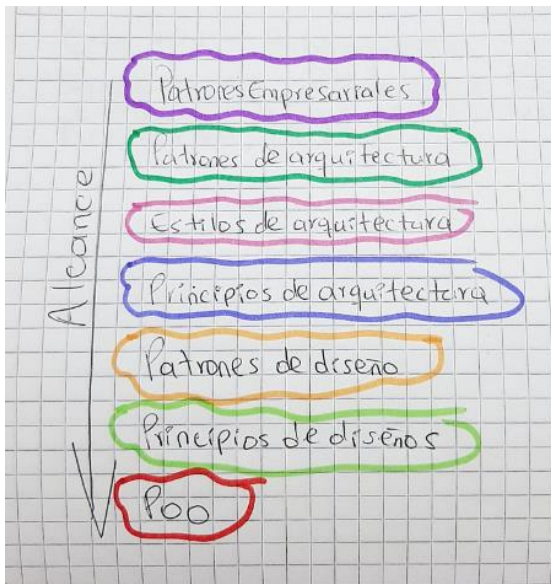 Alcance
Patrones Empresariales
Patrones de arquitectura
Estilos de arquitectura
Principios de arquitectura
Patrones de diseño
Principios de diseños
POO